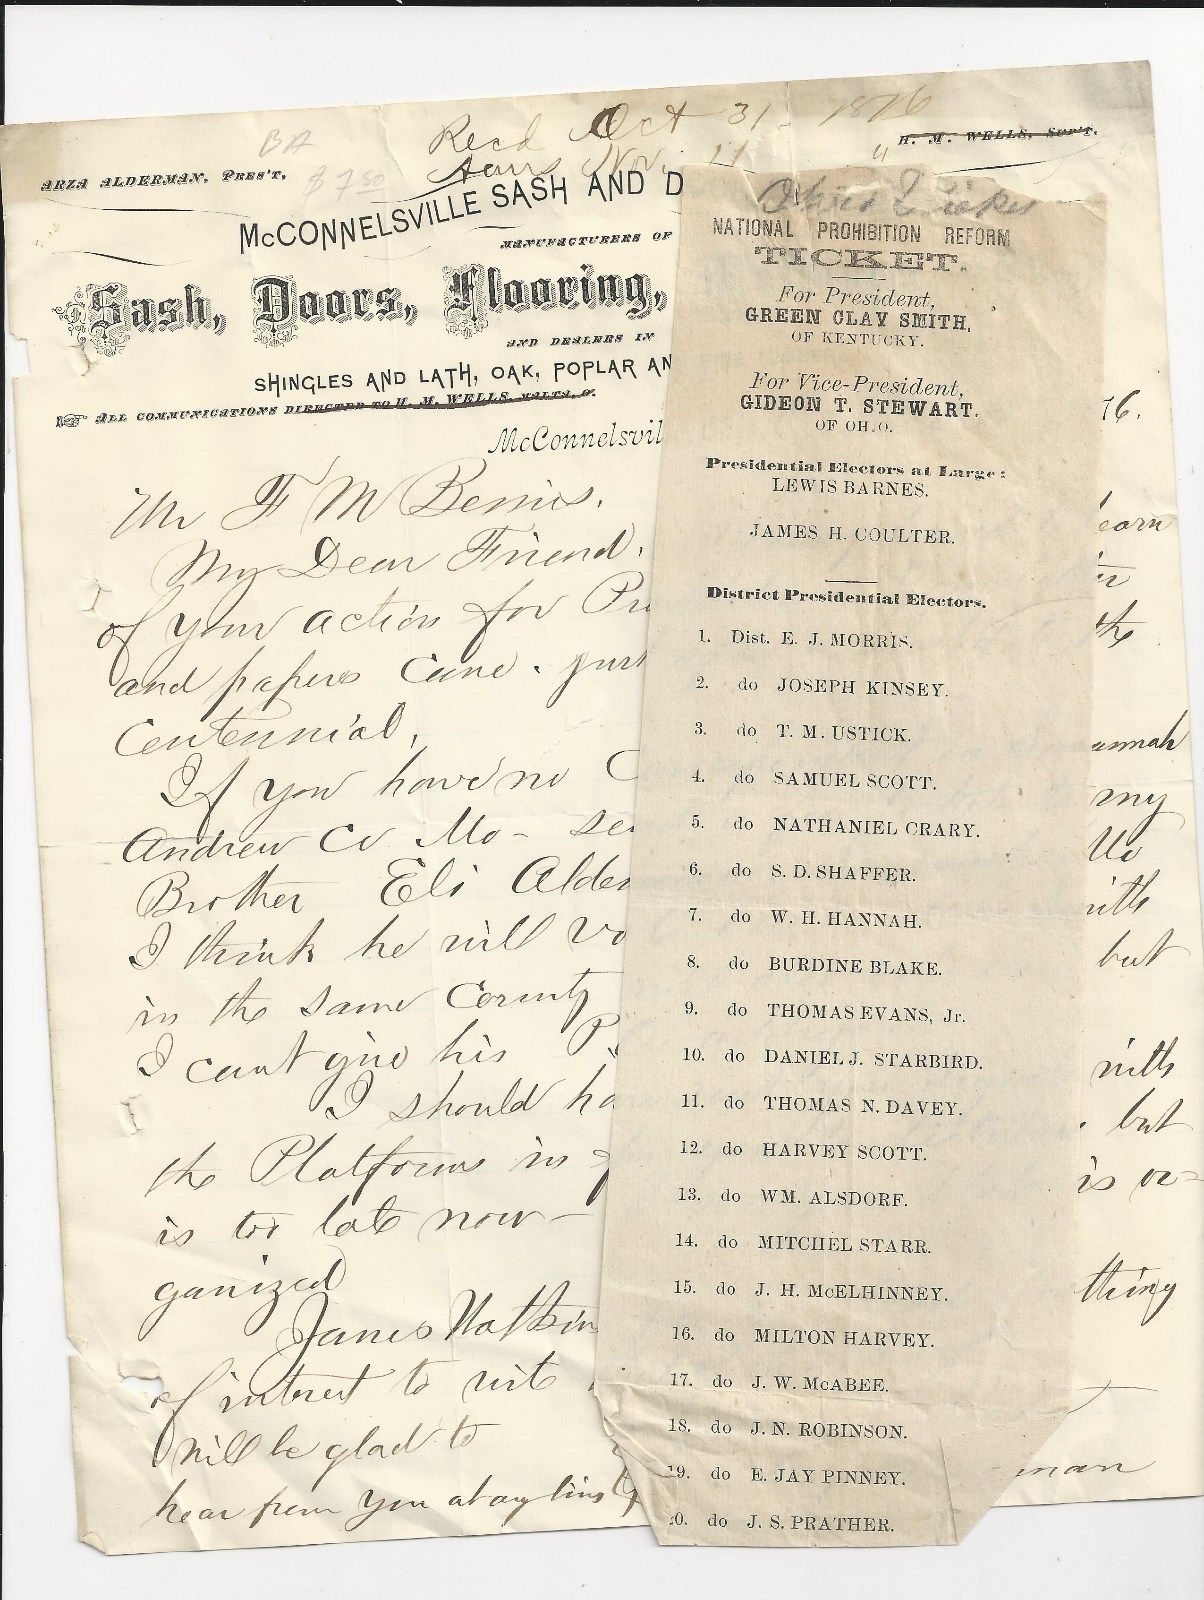 Recd Oct 31 1876
BA
$7.50
Nov. 11 "
ARZA ALDERMAN, PRES'T,
H. M. WELLS, SUP'T.
McCONNELSVILLE SASH AND D
MANUFACTURERS OF
Sash, Doors, Flooring,
AND DEALERS IN
SHINGLES AND LATH, OAK, POPLAR AN
ALL COMMUNICATIONS DIRECTED TO H. M. WELLS, MALTA, O.
McConnelsvil
76.
Mr F M Bemis.
My Dear Friend, earn
of your action for Pr
and papers came. just the
Centennial,
If you have no C annah
Andrew Co Mo - se my
Brother Eli Alder Mo
I think he will vo with
in the same County but
I cant give his P with
I should ha but
the Platforms in is or=
is too late now -
ganized thing
James Watkin
of interest to write
will be glad to man
hear from you at any time
Ohio Ticket
NATIONAL PROHIBITION REFORM
TICKET.
For President,
GREEN CLAY SMITH,
OF KENTUCKY.
For Vice-President,
GIDEON T. STEWART.
OF OH.O.
Presidential Electors at Large:
LEWIS BARNES.
JAMES H. COULTER.
District Presidential Electors.
1. Dist. E. J. MORRIS.
2. do JOSEPH KINSEY.
3. do T. M. USTICK.
4. do SAMUEL SCOTT.
5. do NATHANIEL CRARY.
6. do S. D. SHAFFER.
7. do W. H. HANNAH.
8. do BURDINE BLAKE.
9. do THOMAS EVANS, Jr.
10. do DANIEL J. STARBIRD.
11. do THOMAS N. DAVEY.
12. do HARVEY SCOTT.
13. do WM. ALSDORF.
14. do MITCHEL STARR.
15. do J. H. McELHINNEY.
16. do MILTON HARVEY.
17. do J. W. McABEE.
18. do J. N. ROBINSON.
19. do E. JAY PINNEY.
20. do J. S. PRATHER.